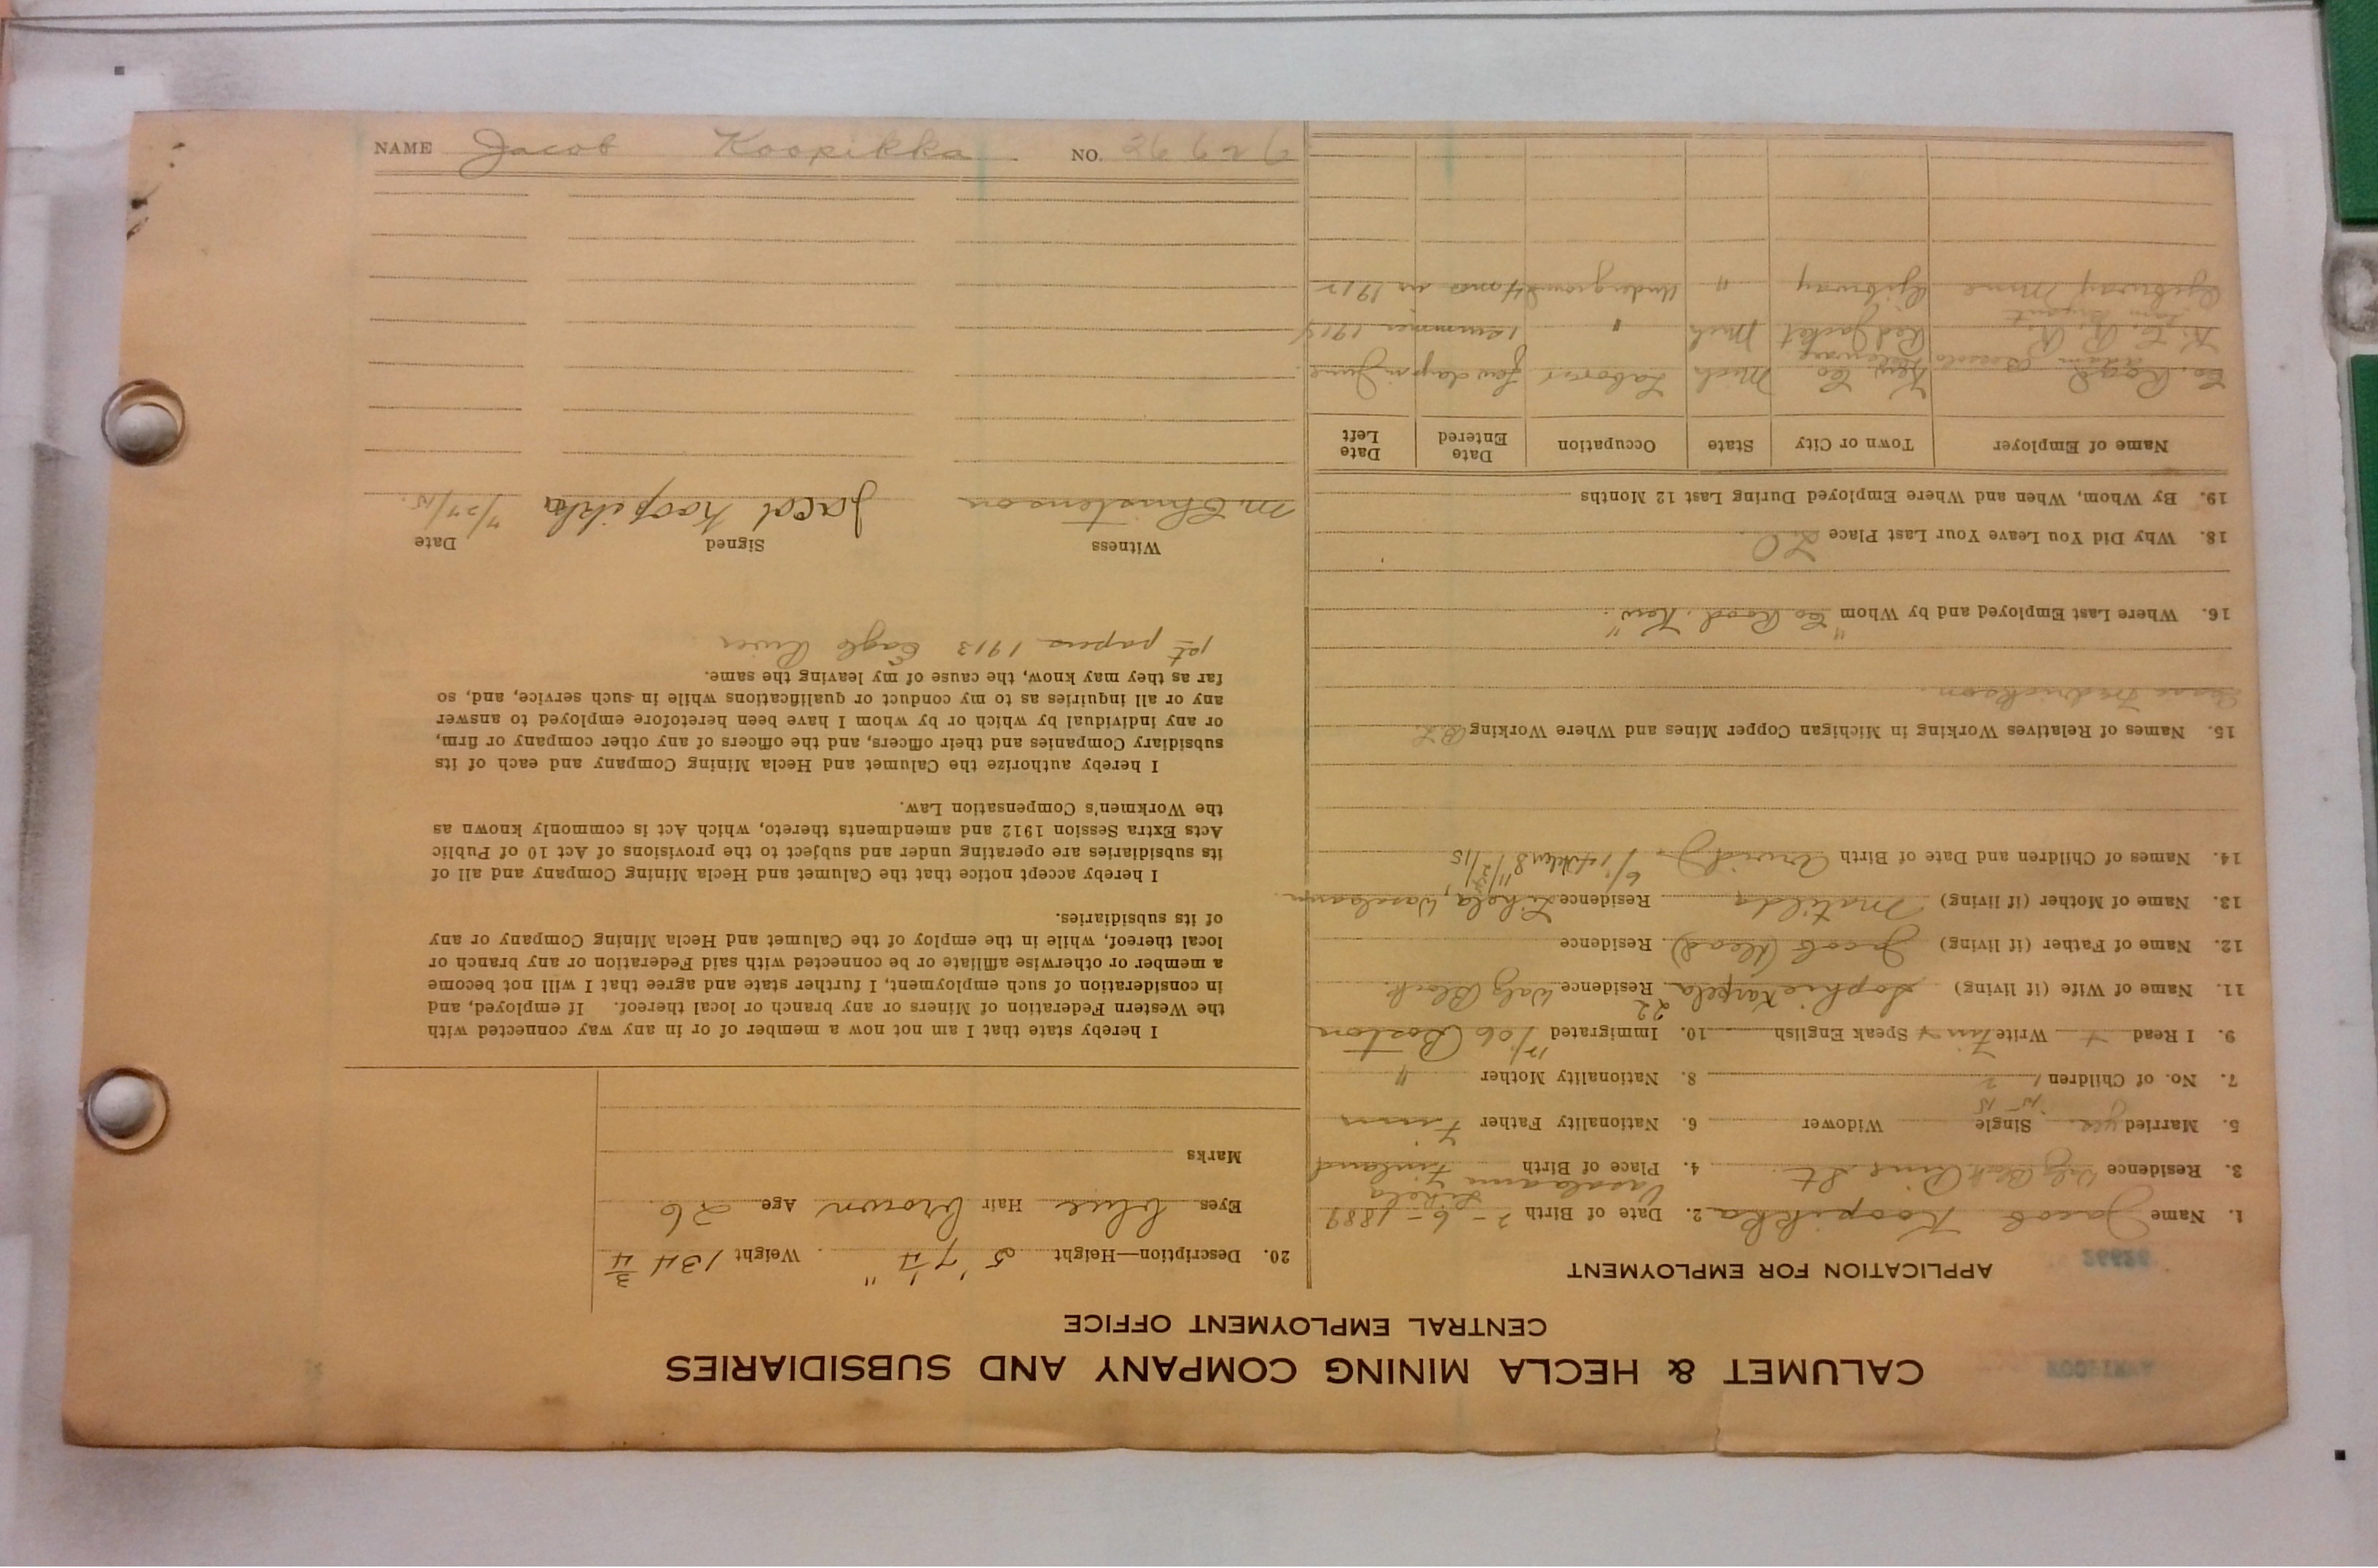 CALUMET & HECLA MINING COMPANY AND SUBSIDIARIES
CENTRAL EMPLOYMENT OFFICE
26626
APPLICATION FOR EMPLOYMENT
1. Name Jacob Koopikka 2. Date of Birth 2-6-1889
3. Residence Block Pine St. 4. Place of Birth Finland
5. Married yes Single Widower 6. Nationality Father Finn
7. No. of Children 1 2 8. Nationality Mother "
9. I Read + Write Finn + Speak English 10. Immigrated /06 Boston
22
11. Name of Wife (if living) Sophie Karpela Residence Block
12. Name of Father (if living) Jacob (dead) Residence
13. Name of Mother (if living) Matilda Residence
14. Names of Children and Date of Birth Arvid J.
15. Names of Relatives Working in Michigan Copper Mines and Where Working
Fredrickson
16. Where Last Employed and by Whom "Co Road. Kew".
18. Why Did You Leave Your Last Place L.O.
19. By Whom, When and Where Employed During Last 12 Months
Name of Employer Town or City State Occupation Date Entered Date Left
Co. Road Kew Co Mich Laborer few days in June
Adam
K. C. R. R. Red Jacket Mich " 1 summer 1914
Ojibway Mine Ojibway " Underground 4 mos in 1912
20. Description—Height 5' 7 1/4" Weight 134 3/4
Eyes blue Hair brown Age 26
Marks
I hereby state that I am not now a member of or in any way connected with
the Western Federation of Miners or any branch or local thereof. If employed, and
in consideration of such employment, I further state and agree that I will not become
a member or otherwise affiliate or be connected with said Federation or any branch or
local thereof, while in the employ of the Calumet and Hecla Mining Company or any
of its subsidiaries.
I hereby accept notice that the Calumet and Hecla Mining Company and all of
its subsidiaries are operating under and subject to the provisions of Act 10 of Public
Acts Extra Session 1912 and amendments thereto, which Act is commonly known as
the Workmen's Compensation Law.
I hereby authorize the Calumet and Hecla Mining Company and each of its
subsidiary Companies and their officers, and the officers of any other company or firm,
or any individual by which or by whom I have been heretofore employed to answer
any or all inquiries as to my conduct or qualifications while in such service, and, so
far as they may know, the cause of my leaving the same.
1st papers 1913 Eagle River
Witness Signed Date
M. Christenson Jacob Koopikka 7/27/15.
NAME Jacob Koopikka NO. 26626